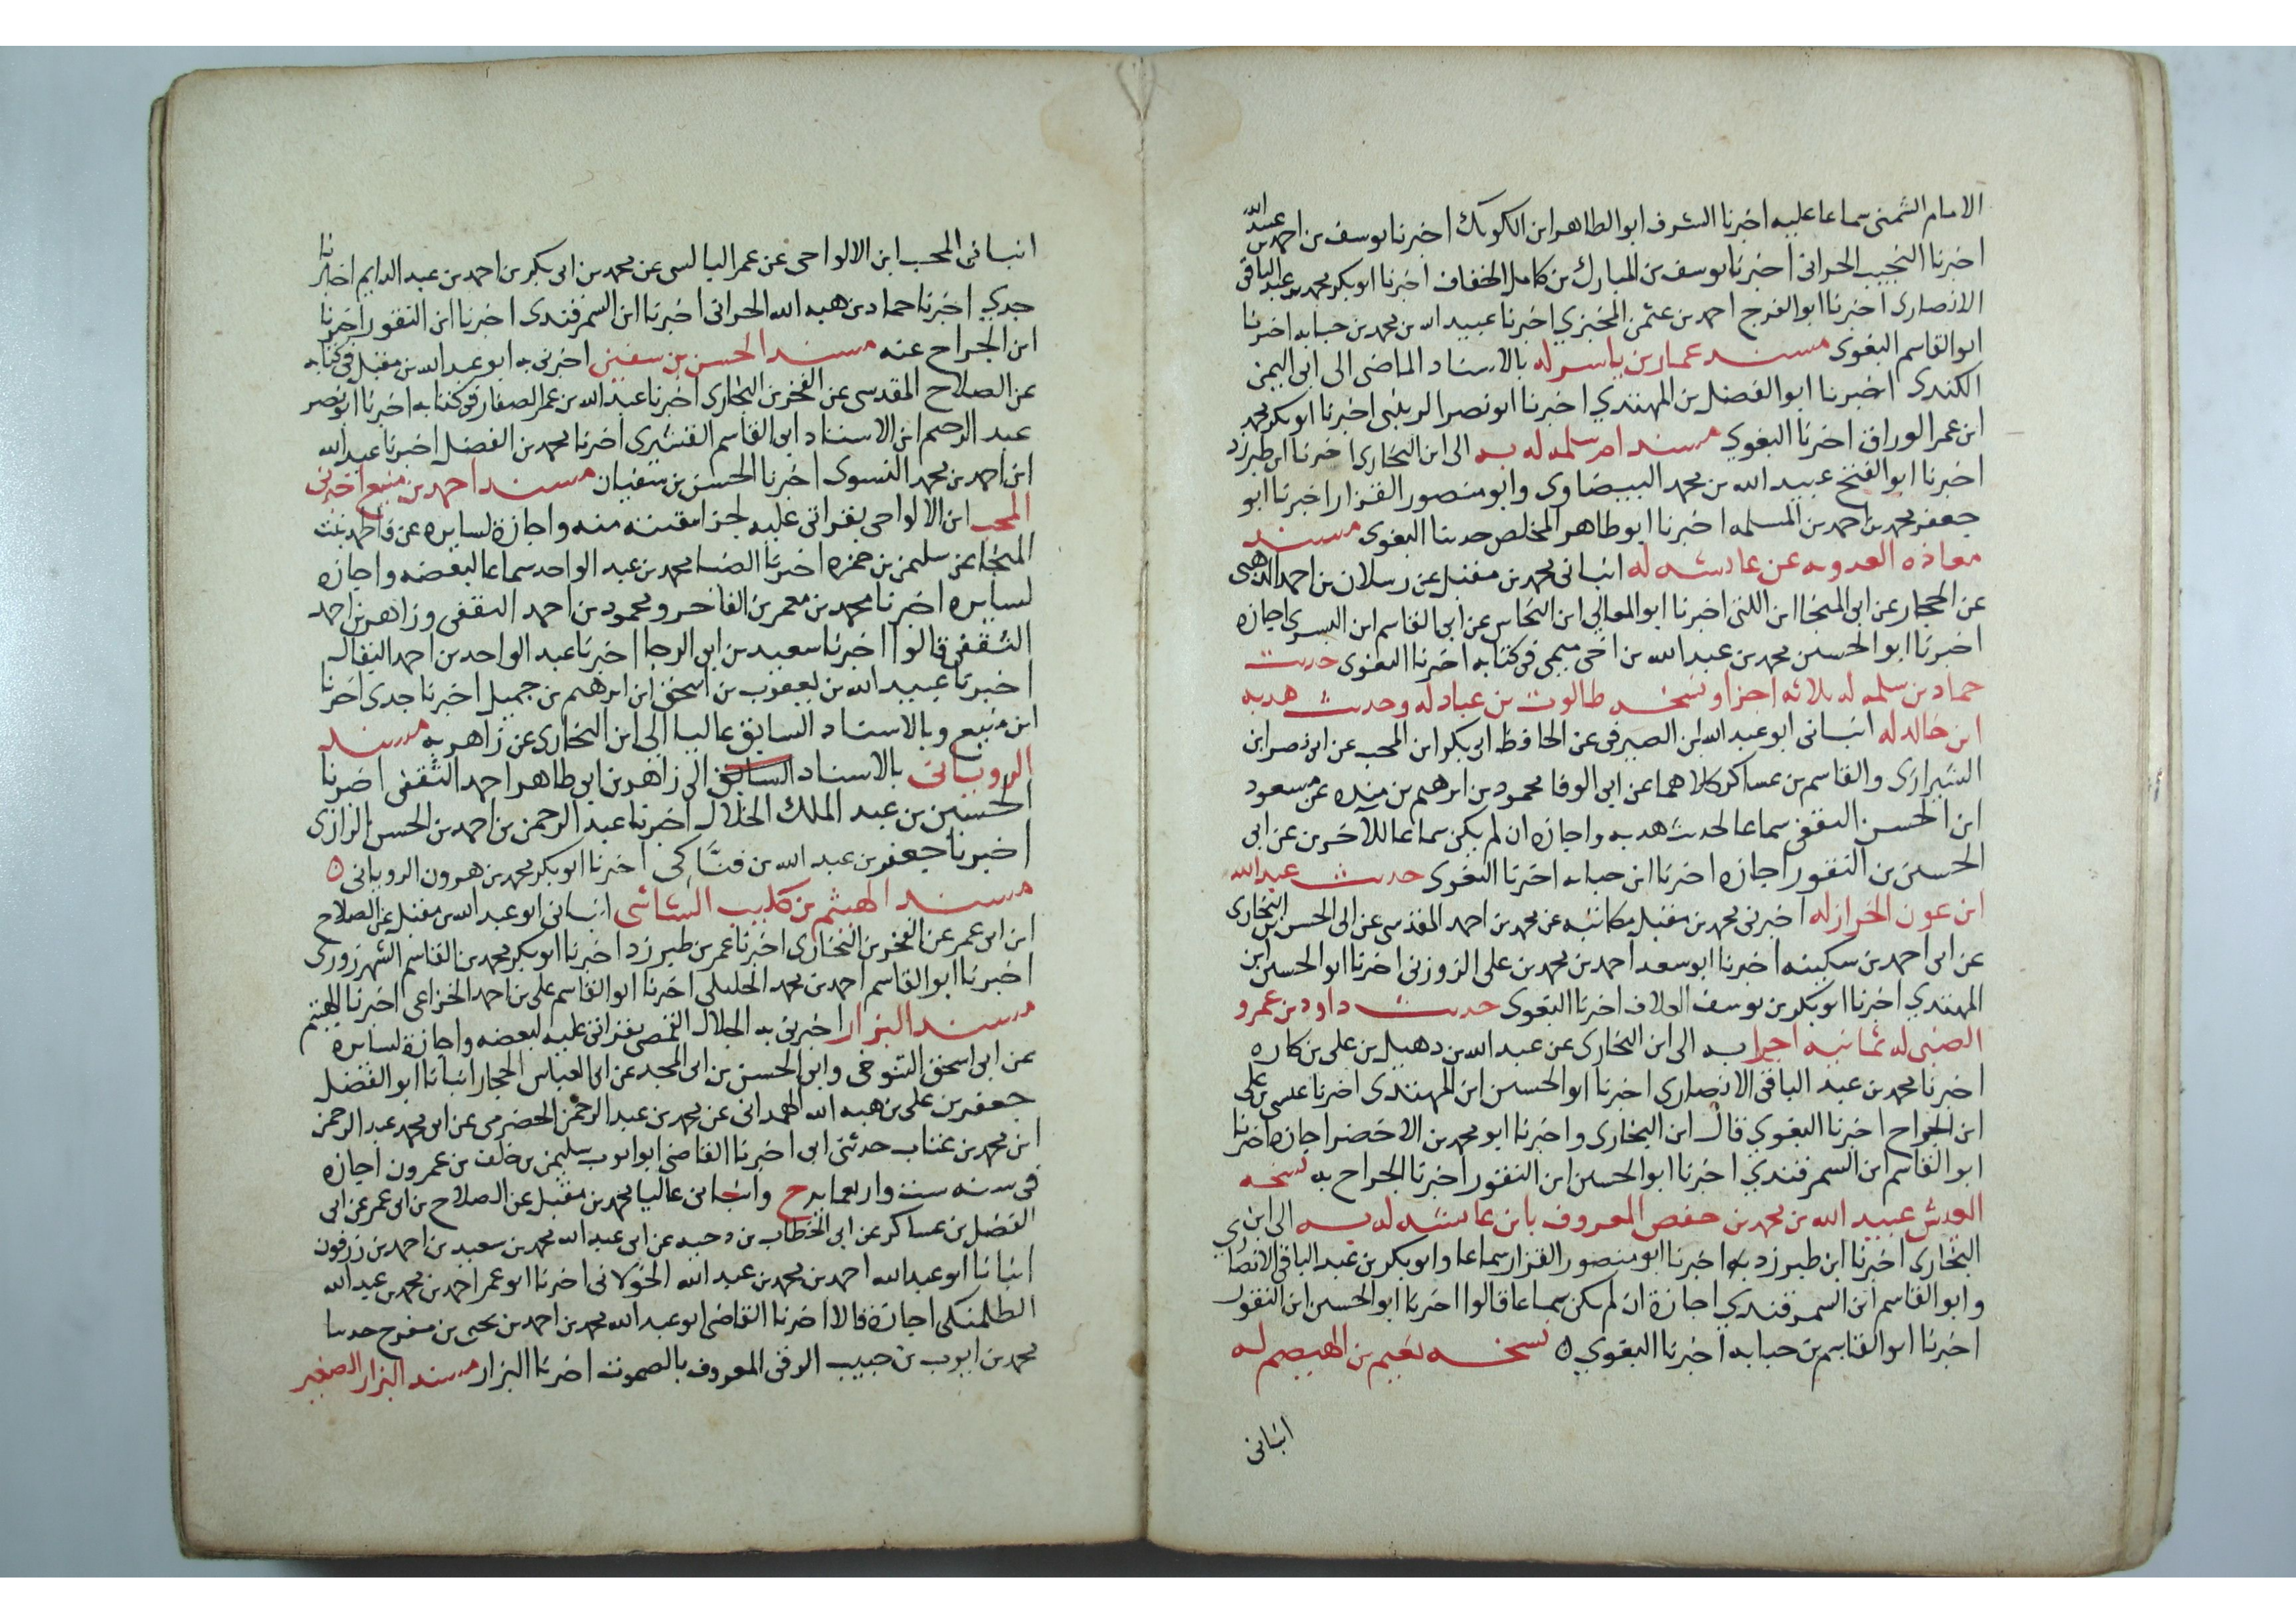 الامام الشمنى سماعا عليه اخبرنا الشرف ابو الطاهر ابن الكويك اخبرنا يوسف بن احمد بن عبد الله
اخبرنا النجيب الحرانى اخبرنا يوسف بن المبارك بن كامل الخفاف اخبرنا ابو بكر محمد بن عبد الباقى
الانصارى اخبرنا ابو الفرج احمد بن عثمن المخبزي اخبرنا عبيد الله بن محمد بن حبابه اخبرنا
ابو القاسم البغوى مسند عمار بن ياسر له بالاسناد الماضى الى ابى اليمن
الكندى اخبرنا ابو الفضل بن المهتدي اخبرنا ابو نصر الزينبى اخبرنا ابو بكر محمد
ابن عمر الوراق اخبرنا البغوي مسند ام سلمه له به الى ابن البخارى اخبرنا ابن طبرزد
اخبرنا ابو الفتح عبيد الله بن محمد البيضاوى وابو منصور القزاز اخبرنا ابو
جعفر محمد بن احمد بن المسلمه اخبرنا ابو طاهر المخلص حدثنا البغوى مسند
معاذه العدويه عن عائشه له انبانى محمد بن مقبل عن رسلان بن احمد الذهبى
عن الحجار عن ابى المنجا ابن اللتى اخبرنا ابو المعالي ابن النحاس عن ابى القاسم ابن البسري اجازه
اخبرنا ابو الحسين محمد بن عبد الله بن اخى ميمى فى كتابه اخبرنا البغوى حديث
حماد بن سلمه له ثلاثه اجزا ونسخه طالوت بن عباد له وحديث هدبه
ابن خالد له انبانى ابو عبد الله ابن الصيرفى عن الحافظ ابى بكر ابن المحب عن ابى نصر ابن
الشيرازى والقاسم بن عساكر كلاهما عن ابى الوفا محمود بن ابرهيم بن منده عن مسعود
ابن الحسن الثقفى سماعا لحديث هدبه واجازه ان لم يكن سماعا للآخرين عن ابى
الحسين بن النقور اجازه اخبرنا ابن حبابه اخبرنا البغوى حديث عبد الله
ابن عون الخراز له اخبرنى محمد بن مقبل مكاتبه عن محمد بن احمد المقدسى عن ابى الحسن ابن البخارى
عن ابى احمد بن سكينه اخبرنا ابو سعد احمد بن محمد بن على الزوزنى اخبرنا ابو الحسين ابن
المهتدي اخبرنا ابو بكر بن يوسف العلاف اخبرنا البغوى حديث داود بن عمرو
الضبى له ثمانيه اجزا به الى ابن البخارى عن عبد الله بن دهبل بن على بن كاره
اخبرنا محمد بن عبد الباقى الانصارى اخبرنا ابو الحسين ابن المهتدى اخبرنا عيسى بن على
ابن الجراح اخبرنا البغوي قال ابن البخارى واخبرنا ابو محمد بن الاخضر اجازه اخبرنا
ابو القاسم ابن السمرقندي اخبرنا ابو الحسين ابن النقور اخبرنا الجراح به نسخه
العيش عبيد الله بن محمد بن حفص المعروف بابن عائشه له به الى ابن
البخارى اخبرنا ابن طبرزد به اخبرنا ابو منصور القزاز سماعا وابو بكر بن عبد الباقى الانصاري
وابو القاسم ابن السمرقندي اجازة ان لم يكن سماعا قالوا اخبرنا ابو الحسين ابن النقور
اخبرنا ابو القاسم بن حبابه اخبرنا البغوي ه نسخه نعيم بن الهيصم له
انبانى
انبانى المحب ابن الالواحى عن عمر البالسى عن محمد بن ابى بكر بن احمد بن عبد الدايم اخبرنا
جدي اخبرنا حماد بن هبه الله الحرانى اخبرنا ابن السمرقندى اخبرنا ابن النقور اخبرنا
ابن الجراح عنه مسند الحسن بن سفين اخبرنى به ابو عبد الله بن مقبل فى كتابه
عن الصلاح المقدسى عن الفخر بن البخارى اخبرنا عبد الله بن عمر الصفار فى كتابه اخبرنا ابو نصر
عبد الرحيم ابن الاستاذ ابى القاسم القشيرى اخبرنا محمد بن الفضل اخبرنا عبد الله
ابن احمد بن محمد النسوى اخبرنا الحسن بن سفيان مسند احمد بن منيع اخبرنى
المحب ابن الالواحى بقراتى عليه لجزا مقتنه منه واجازة لسايره عن فاطمه بنت
المنجا عن سليمن بن حمزه اخبرنا الضيا محمد بن عبد الواحد سماعا لبعضه واجازه
لسايره اخبرنا محمد بن معمر بن الفاخر ومحمود بن احمد الثقفى وزاهر بن احمد
الثقفى قالوا اخبرنا سعيد بن ابى الرجا اخبرنا عبد الواحد بن احمد البقال
اخبرنا عبيد الله بن يعقوب بن اسحق ابن ابرهيم بن جميل اخبرنا جدى اخبرنا
ابن منيع وبالاسناد السابق عاليا الى ابن البخارى عن زاهر به مسند
الرويانى بالاسناد السابق الى زاهر بن ابى طاهر احمد الثقفى اخبرنا
الحسين بن عبد الملك الخلال اخبرنا عبد الرحمن بن احمد بن الحسن الرازى
اخبرنا جعفر بن عبد الله بن فناكى اخبرنا ابو بكر محمد بن هرون الرويانى ه
مسند الهيثم بن كليب الشاشى انبانى ابو عبد الله بن مقبل عن الصلاح
ابن ابى عمر عن الفخر بن البخارى اخبرنا عمر بن طبرزد اخبرنا ابو بكر محمد بن القاسم الشهرزورى
اخبرنا ابو القاسم احمد بن محمد الخليلى اخبرنا ابو القاسم على بن احمد الخزاعى اخبرنا الهيثم
مسند البزار اخبرنى به الجلال القمصى بقراتى عليه لبعضه واجازة لسايره
عن ابى اسحق التنوخى وابى الحسن بن ابى المجد عن ابى العباس الحجار انبانا ابو الفضل
جعفر بن على بن هبه الله الهمدانى عن محمد بن عبد الرحمن الحضرمى عن ابى محمد عبد الرحمن
ابن محمد بن عتاب حدثنى ابى اخبرنا القاضى ابو ايوب سليمن بن خلف بن عمرون اجازه
فى سنه ست واربعمايه ح وانبانى عاليا محمد بن مقبل عن الصلاح بن ابى عمر عن ابى
الفضل بن عساكر عن ابى الخطاب بن دحيه عن ابى عبد الله محمد بن سعيد بن احمد بن زرقون
انبانا ابو عبد الله احمد بن محمد بن عبد الله الخولانى اخبرنا ابو عمر احمد بن محمد بن عبد الله
الطلمنكى اجازة قالا اخبرنا القاضى ابو عبد الله محمد بن احمد بن يحيى بن مفرج حدثنا
محمد بن ايوب بن حبيب الرقى المعروف بالصموت اخبرنا البزار مسند البزار الصغير